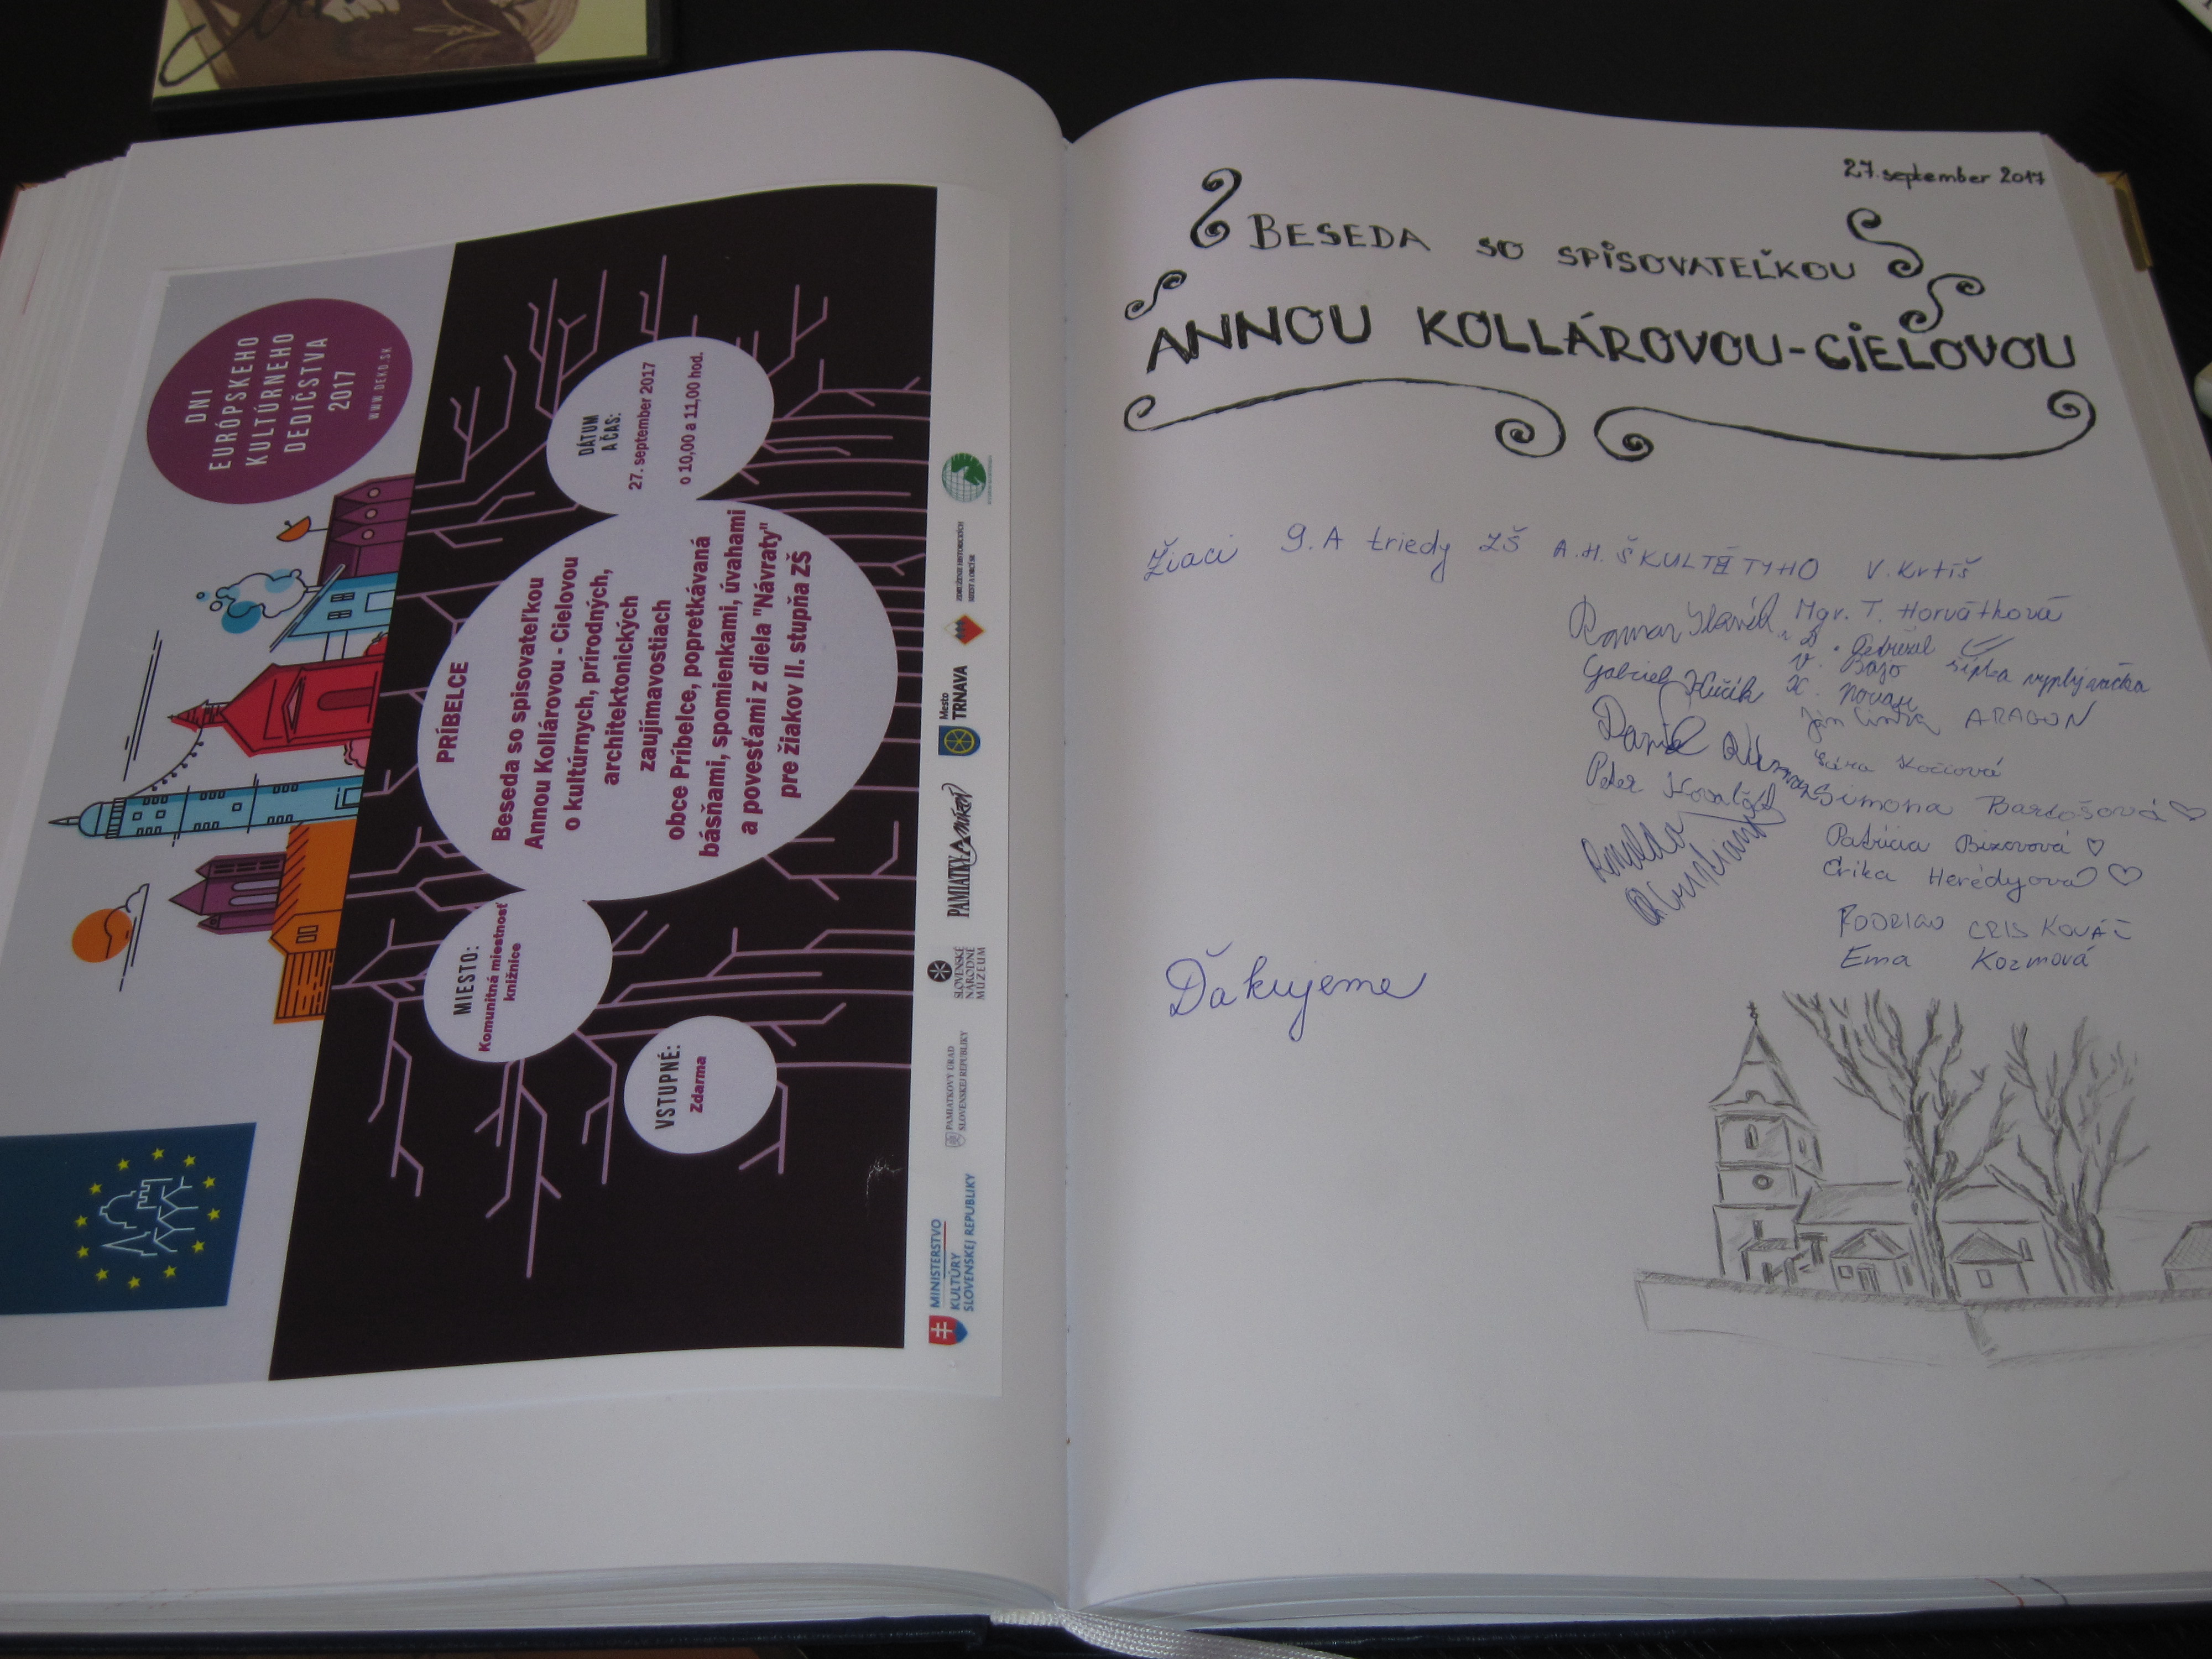 DNI
EURÓPSKEHO
KULTÚRNEHO
DEDIČSTVA
2017
WWW.DEKD.SK
PRÍBELCE
Beseda so spisovateľkou
Annou Kollárovou - Cielovou
o kultúrnych, prírodných,
architektonických
zaujímavostiach
obce Príbelce, popretkávaná
básňami, spomienkami, úvahami
a povesťami z diela "Návraty"
pre žiakov II. stupňa ZŠ
DÁTUM
A ČAS:
27. september 2017
o 10,00 a 11,00 hod.
MIESTO:
Komunitná miestnosť
knižnice
VSTUPNÉ:
Zdarma
MINISTERSTVO
KULTÚRY
SLOVENSKEJ REPUBLIKY
PAMIATKOVÝ ÚRAD
SLOVENSKEJ REPUBLIKY
SLOVENSKÉ
NÁRODNÉ
MÚZEUM
PAMIATKY
Mesto
TRNAVA
ZDRUŽENIE HISTORICKÝCH
MIEST A OBCÍ SR
27. september 2017
BESEDA SO SPISOVATEĽKOU
ANNOU KOLLÁROVOU-CIELOVOU
Žiaci 9.A triedy ZŠ A.H. ŠKULTÉTYHO V. Krtíš
Mgr. T. Horváthová
Roman
Gabriel
V. Bajo
ARAGON
Daniel
Peter
Sára
Simona Bartošová ♡
Patrícia ♡
Erika Herédyová ♡
Ronaldo
RODRIGO CRIS KOVÁČ
Ema Kozmová
Ďakujeme